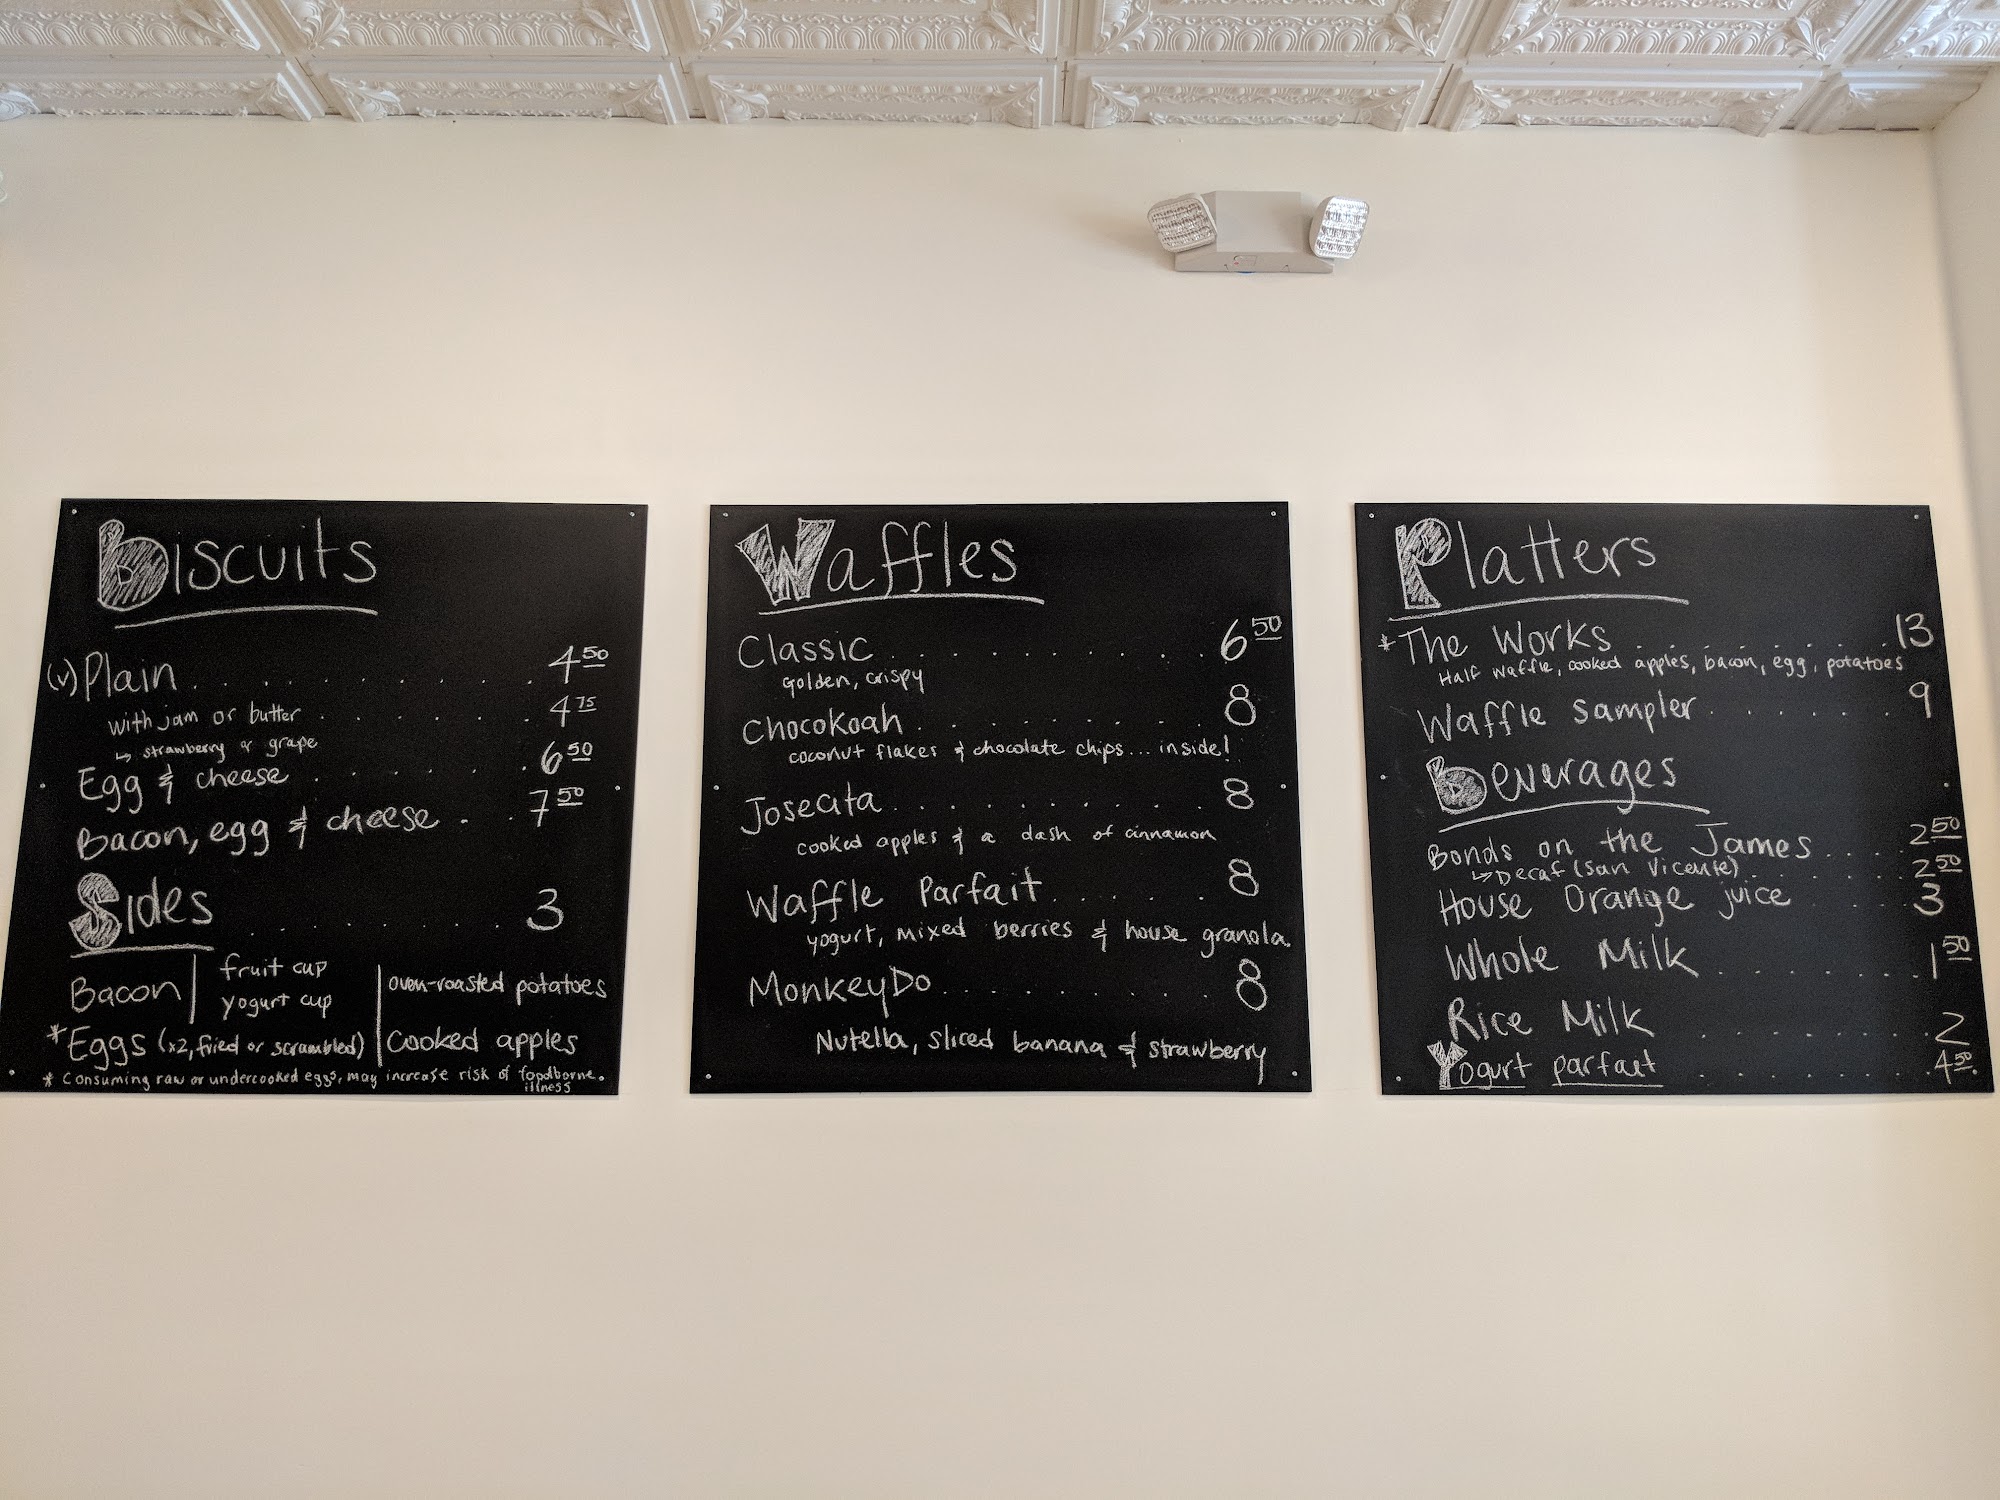 Biscuits
(v) Plain . . . . . . . . . . 4 50
with jam or butter . . . . . . . 4 75
↳ strawberry or grape
Egg & cheese . . . . . . . 6 50
Bacon, egg & cheese . . 7 50
Sides . . . . . . . . 3
Bacon
fruit cup
yogurt cup
oven-roasted potatoes
*Eggs (x2, fried or scrambled)
Cooked apples
* Consuming raw or undercooked eggs, may increase risk of foodborne
illness
Waffles
Classic . . . . . . . . . . 6 50
Golden, crispy
Chocokoah . . . . . . . . 8
coconut flakes & chocolate chips... inside!
Josecita . . . . . . . . . . 8
cooked apples & a dash of cinnamon
Waffle Parfait . . . . . 8
yogurt, mixed berries & house granola
MonkeyDo . . . . . . . . . 8
Nutella, sliced banana & strawberry
Platters
*The Works . . . . . . . . . . 13
Half waffle, cooked apples, bacon, egg, potatoes
Waffle sampler . . . . . . 9
Beverages
Bonds on the James . . . . 2 50
↳ Decaf (San Vicente) . . . . . 2 50
House Orange juice . . . . 3
Whole Milk . . . . . . . 1 50
Rice Milk . . . . . . . . 2
Yogurt parfait . . . . . . . . 4 50